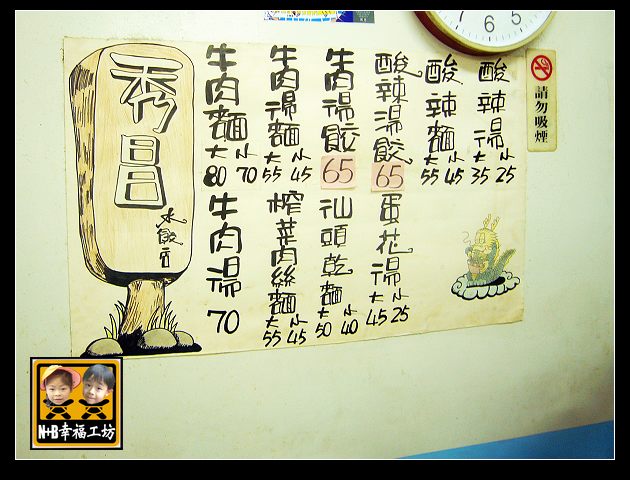 秀昌
水餃店
牛肉麵 大80 小70
牛肉湯麵 大55 小45
牛肉湯餃 65
酸辣湯餃 65
酸辣麵 大55 小45
酸辣湯 大35 小25
牛肉湯 70
榨菜肉絲麵 大55 小45
汕頭乾麵 大50 小40
蛋花湯 大45 小25
請勿吸煙
7 6 5
N+B幸福工坊